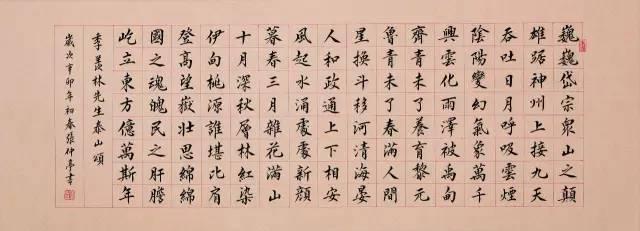 巍巍岱宗眾山之巔
雄踞神州上接九天
吞吐日月呼吸雲煙
陰陽變幻氣象萬千
興雲化雨澤被禹甸
齊青未了養育黎元
魯青未了春滿人間
星換斗移河清海晏
人和政通上下相安
風起水湧處處新顏
暮春三月雜花滿山
十月深秋層林紅染
伊甸桃源誰堪比肩
登高望嶽壯思綿綿
國之魂魄民之肝膽
屹立東方億萬斯年
季羨林先生泰山頌
歲次辛卯年初春張仲亭書